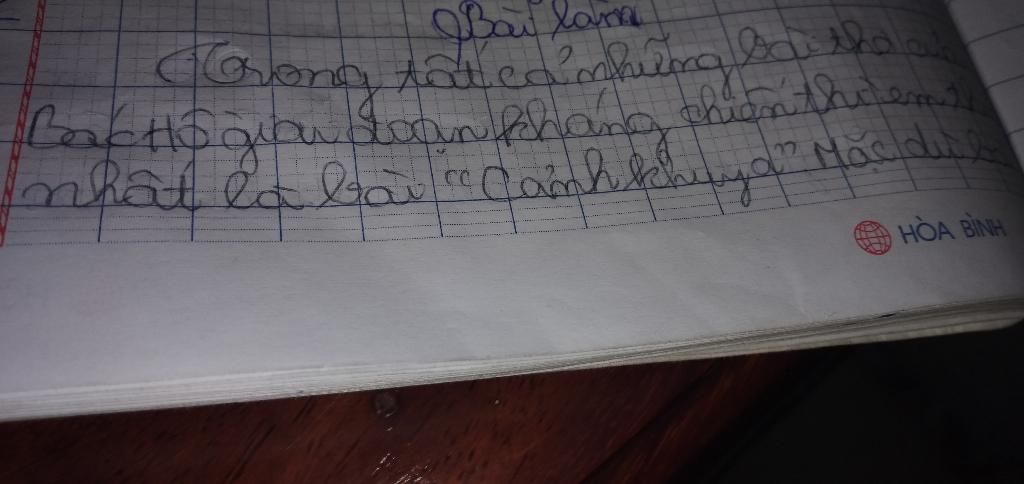 Bài làm
Trong tất cả những bài thơ của
Bác Hồ giai đoạn kháng chiến thì em
nhất là bài "Cảnh khuya" Mặc dù
HÒA BÌNH